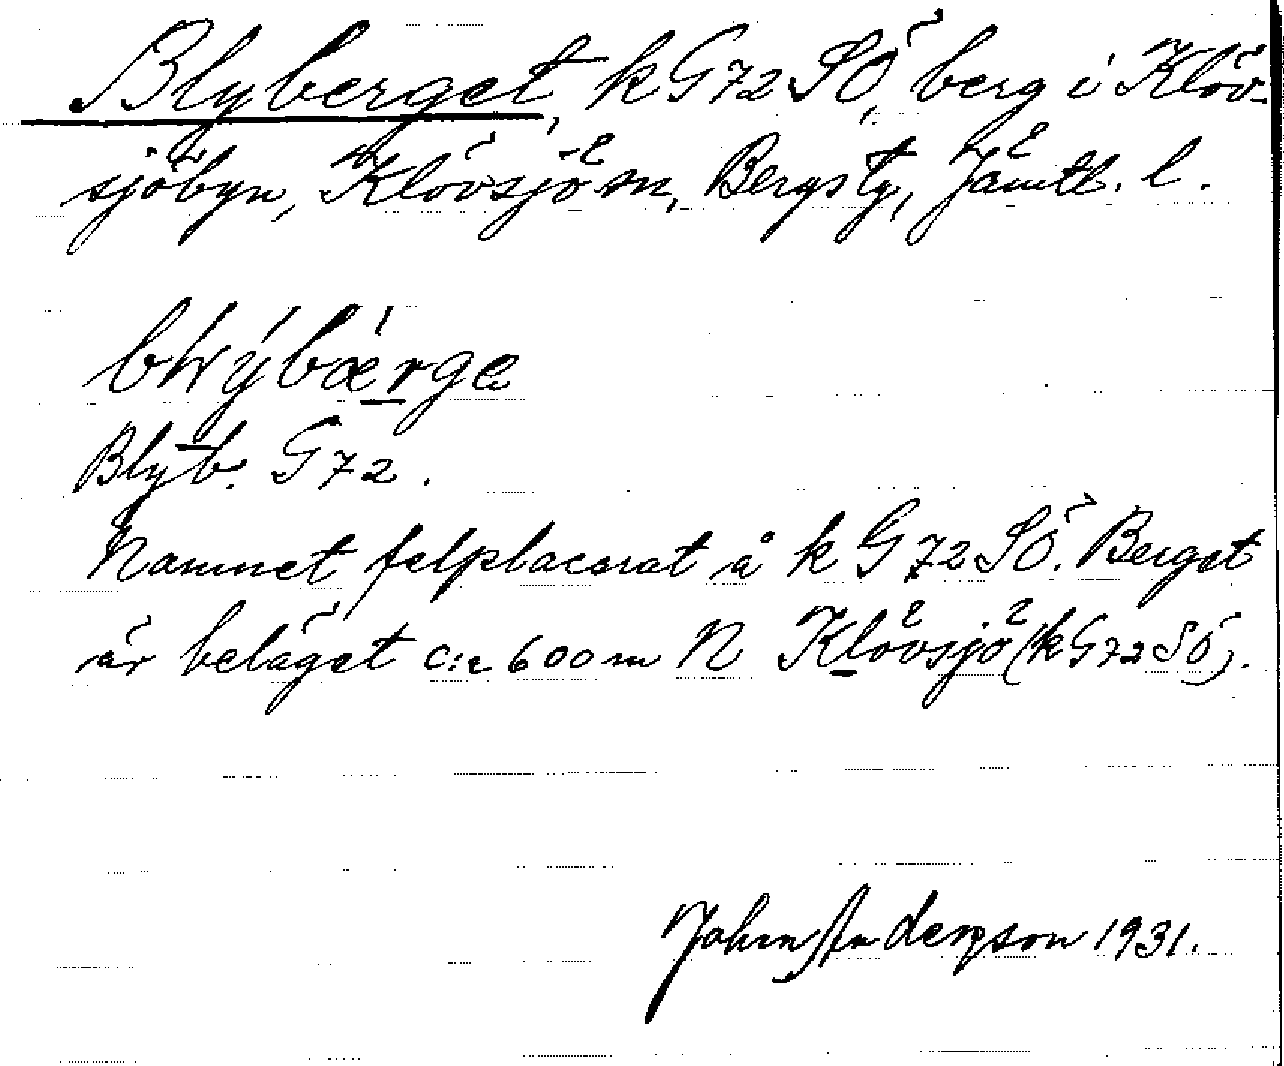 Blyberget, k G72SÖ, berg i Klöv-
sjöbyn, Klövsjö sn, Bergs tg, Jämtl. l.
blýbærge
Blyb. G72.
Namnet felplacerat å k G72SÖ. Berget
är beläget c:a 600 m N Klövsjö (k G72SÖ).
John Andersson 1931.